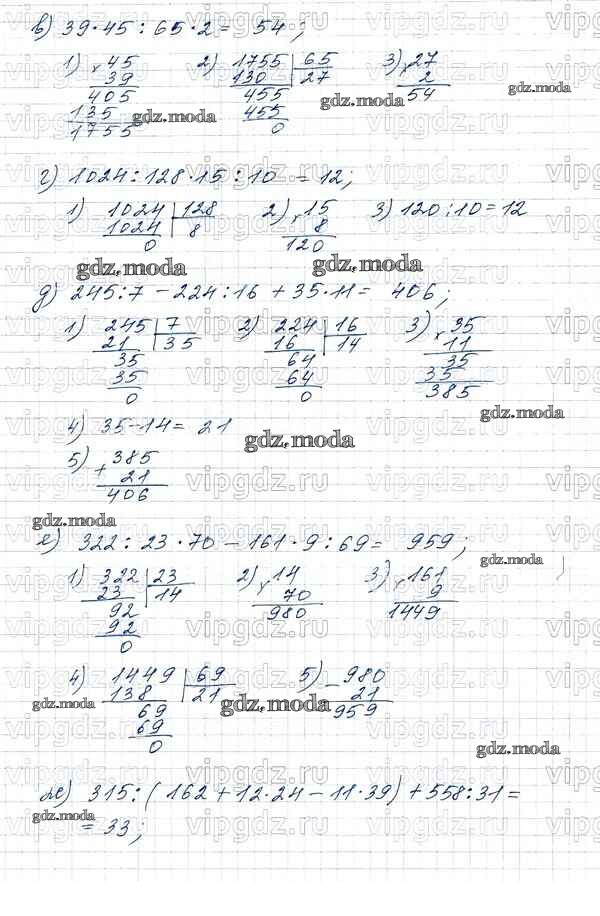 в) 39·45:65·2= 54;
1) 45 2) 1755 65 3) 27
× 39 130 27 × 2
405 455 54
135 455
1755 0
г) 1024:128·15:10 =12;
1) 1024 128 2) 15 3) 120:10=12
1024 8 × 8
0 120
д) 245:7-224:16+35·11= 406;
1) 245 7 2) 224 16 3) 35
21 35 16 14 × 11
35 64 35
35 64 35
0 0 385
4) 35-14= 21
5) 385
+ 21
406
е) 322:23·70-161·9:69= 959;
1) 322 23 2) 14 3) 161
23 14 × 70 × 9
92 980 1449
92
0
4) 1449 69 5) 980
138 21 - 21
69 959
69
0
ж) 315:(162+12·24-11·39)+558:31=
= 33;
gdz.moda
vipgdz.ru